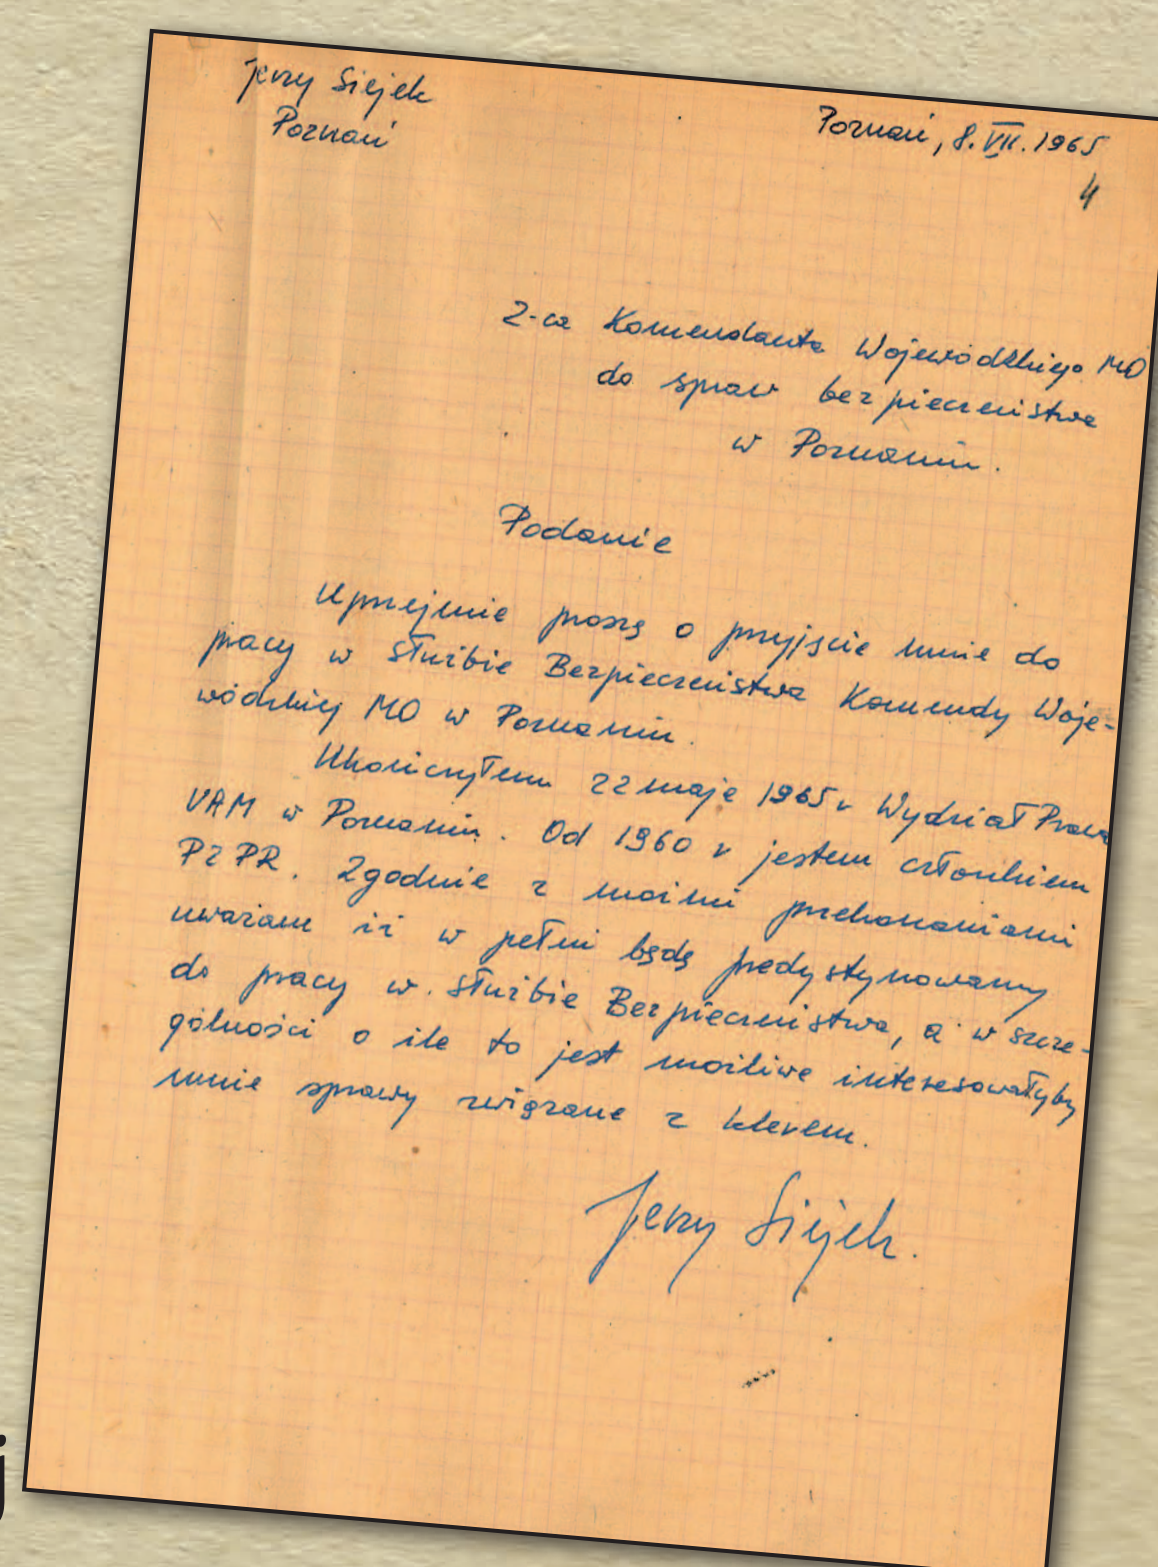 Jerzy Siejek
Poznań
Poznań, 8.VII.1965
4
Z-ca Komendanta Wojewódzkiego MO
do spraw bezpieczeństwa
w Poznaniu.
Podanie
Uprzejmie proszę o przyjęcie mnie do
pracy w Służbie Bezpieczeństwa Komendy Woje-
wódzkiej MO w Poznaniu.
Ukończyłem 22 maja 1965 r Wydział Prawa
UAM w Poznaniu. Od 1960 r jestem członkiem
PZPR. Zgodnie z moimi przekonaniami
uważam iż w pełni będę predystynowany
do pracy w Służbie Bezpieczeństwa, a w szcze-
gólności o ile to jest możliwe interesowałyby
mnie sprawy związane z klerem.
Jerzy Siejek.
j